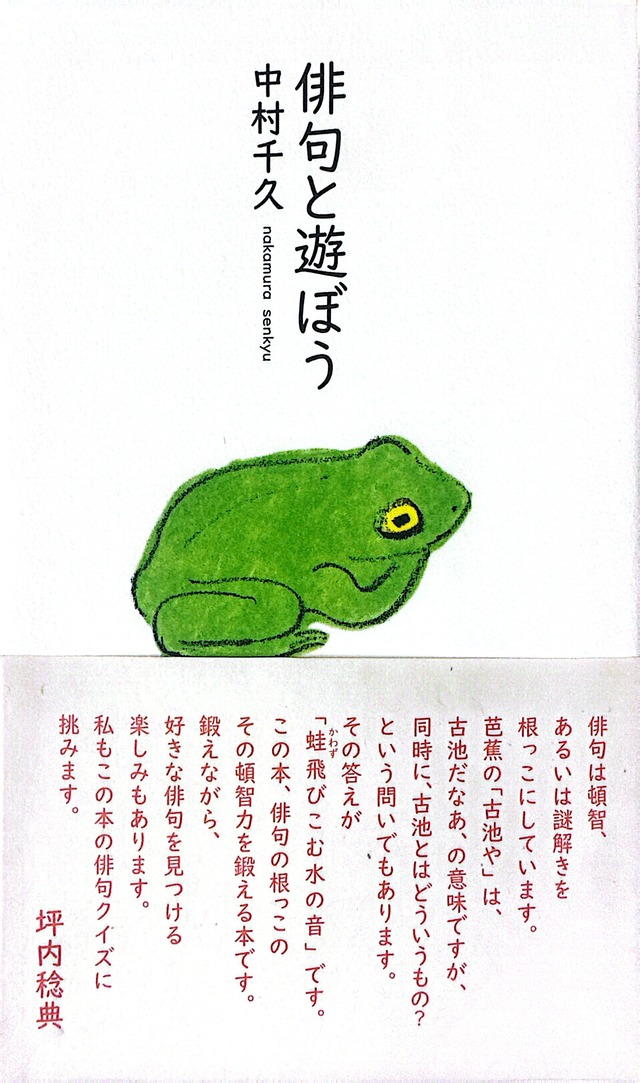 俳句と遊ぼう
中村千久
nakamura senkyu
俳句は頓智、
あるいは謎解きを
根っこにしています。
芭蕉の「古池や」は、
古池だなあ、の意味ですが、
同時に、古池とはどういうもの?
という問いでもあります。
その答えが
「蛙飛びこむ水の音」です。
かわず
この本、俳句の根っこの
その頓智力を鍛える本です。
鍛えながら、
好きな俳句を見つける
楽しみもあります。
私もこの本の俳句クイズに
挑みます。
坪内稔典